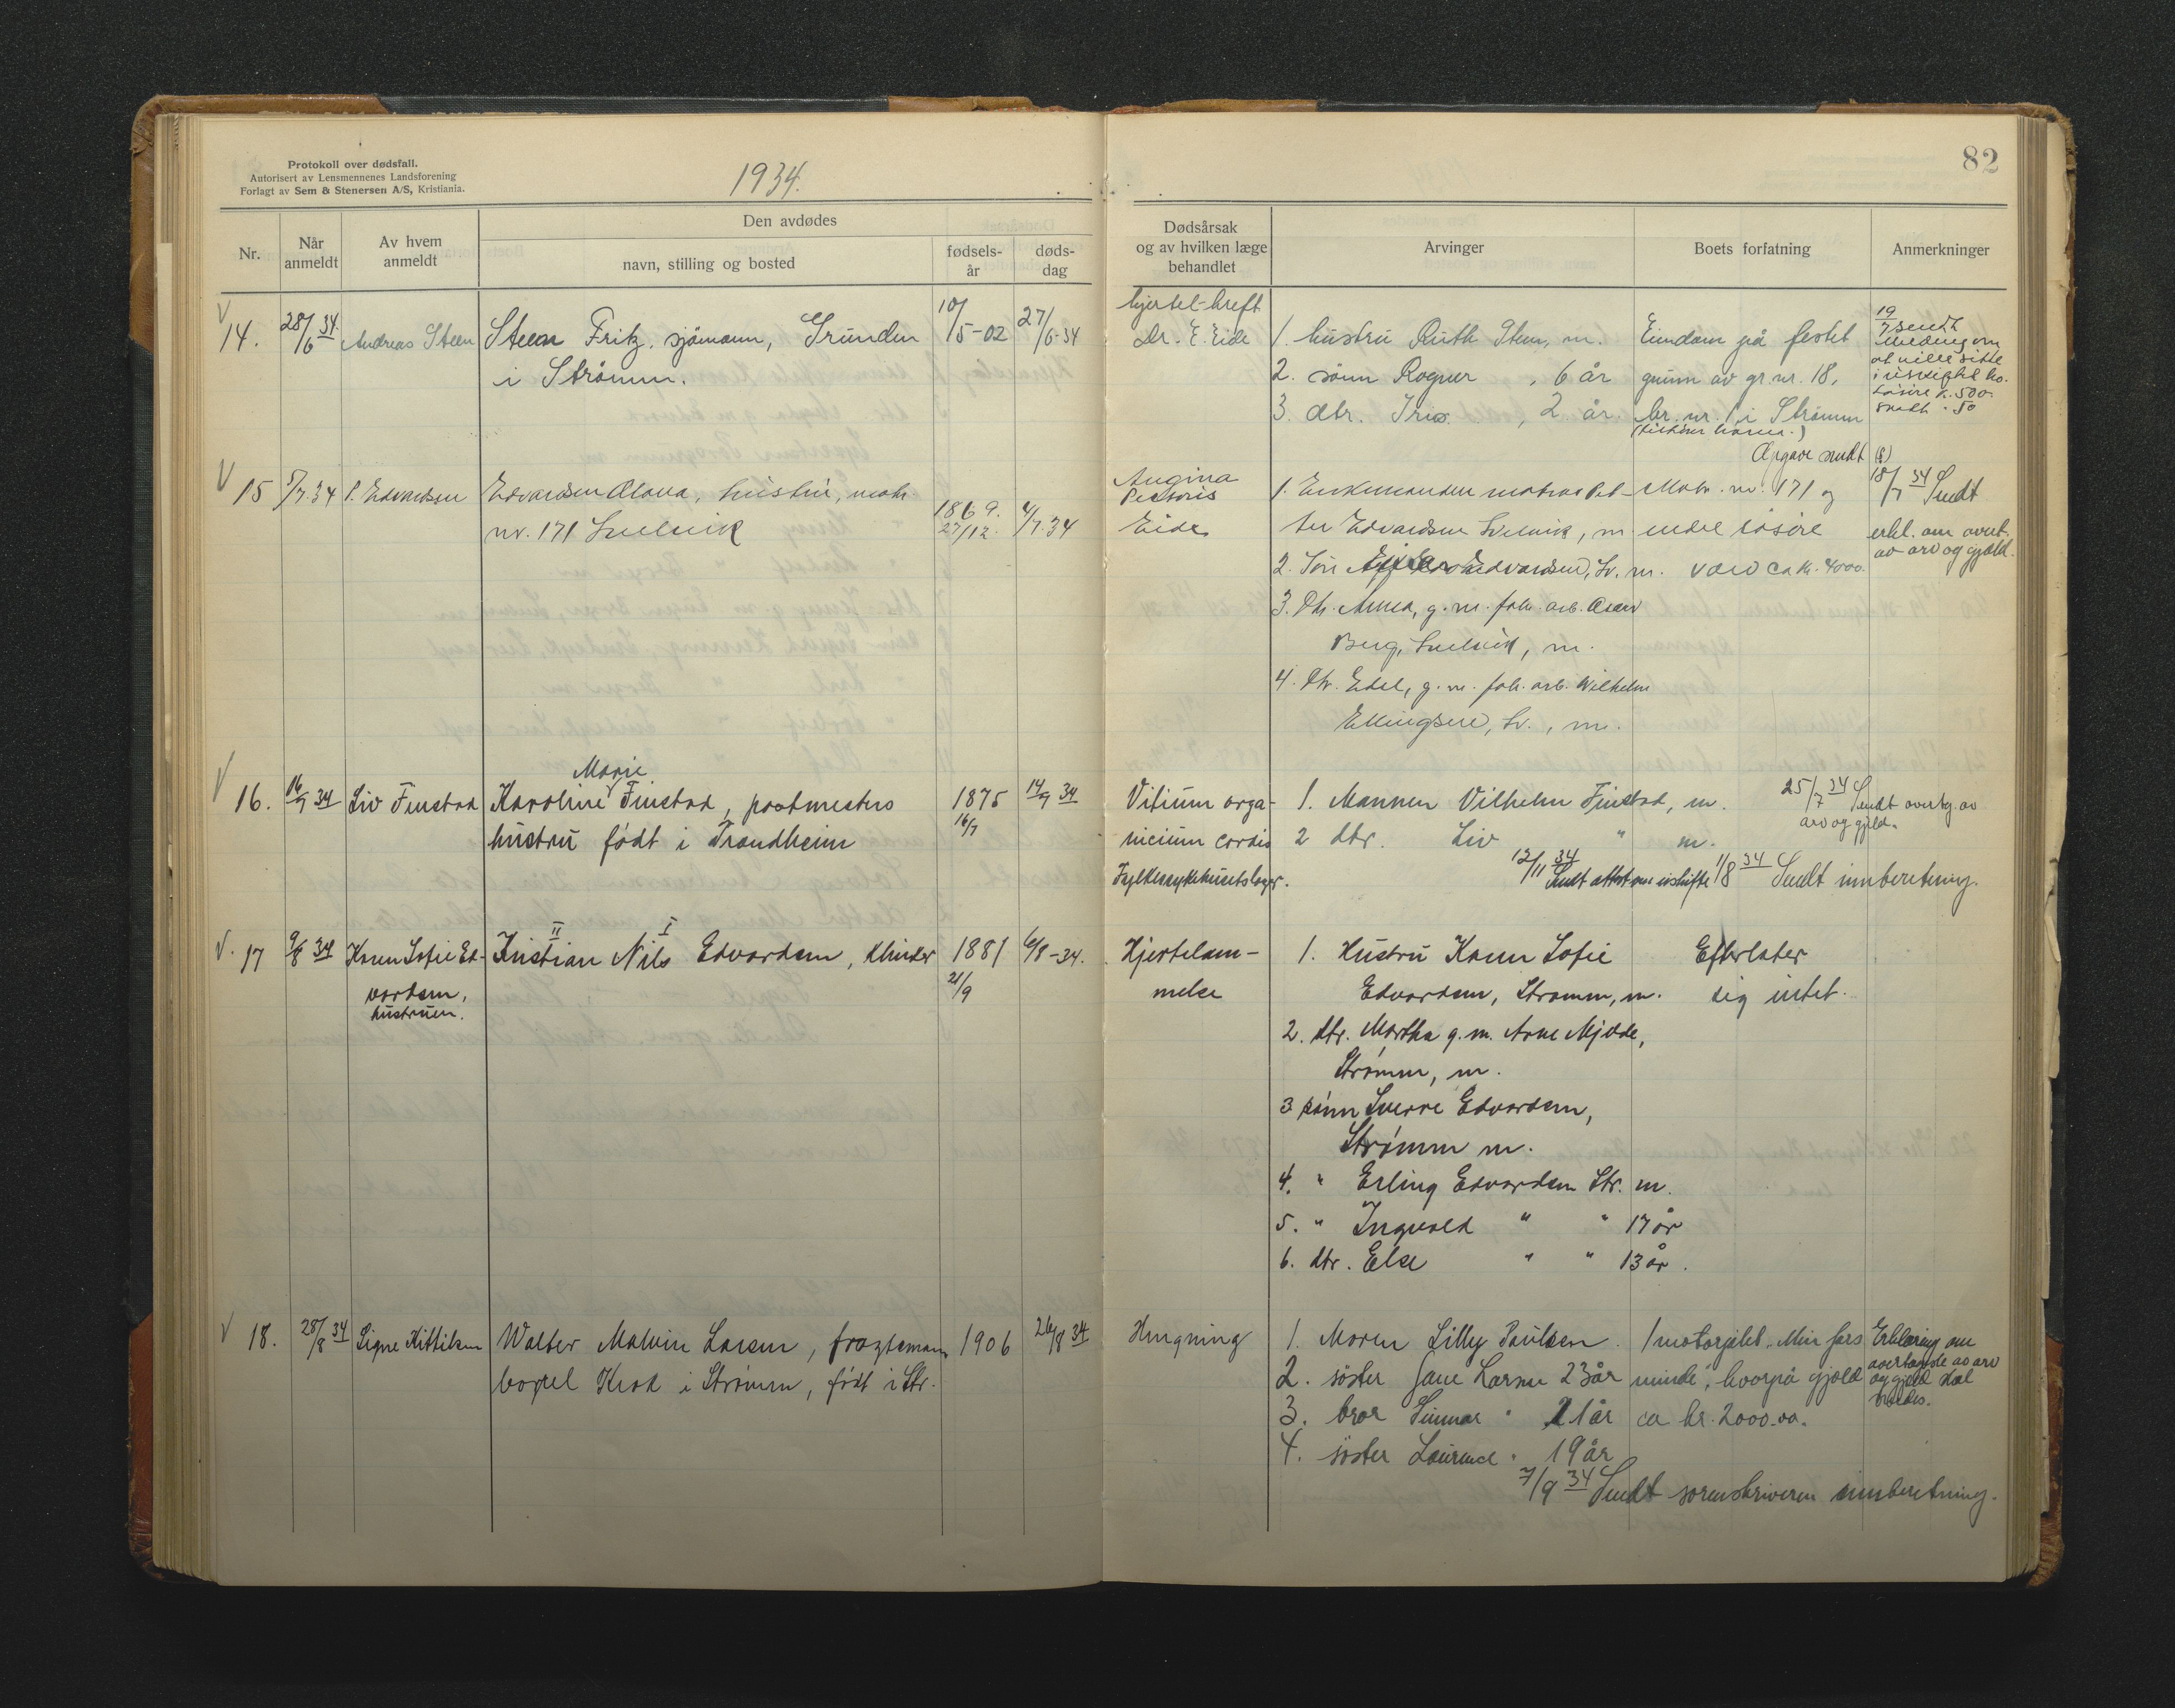 Protokoll over dødsfall.
Autorisert av Lensmennenes Landsforening
Forlagt av Sem & Stenersen A/S, Kristiania.
1934.
82
Nr.
Når anmeldt
Av hvem anmeldt
Den avdødes
navn, stilling og bosted
fødsels-år
døds-dag
Dødsårsak
og av hvilken læge
behandlet
Arvinger
Boets forfatning
Anmerkninger
14. 28/6 34. Andreas Steen
Steen Fritz, sjømann, Grunden
i Strømm.
10/5-02
27/6-34
hjertel-kreft
Dr. E. Eide
1. hustru Ruth Steen, m.
2. sønn Ragnar, 6 år
3. dtr. Iris, 2 år.
Eiendom på festet
grunn av gr.nr. 18,
br. nr. 1 i Strømm
Opgave sendt
19/7 sendt
melding om
at ville sitte
i uskiftet bo.
Løsøre k. 500
15 5/7.34 P. Edvardsen
Edvardsen Olava, hustru, matr.
nr. 171 Svelvik
1869.
27/12.
4/7.34
Angina
Pectoris
Eide
1. Enkemanden matros Pet-
ter Edvardsen Svelvik, m.
2. Søn Edvardsen, Sv. m.
3. Dtr. Anna, g. m. fabr. arb. Oscar
Berg, Svelvik, m.
4. Dtr. Edel, g. m. fab. arb. Wilhelm
Ellingsen, Sv., m.
Matr. nr. 171 og
endel løsøre
værd ca k. 4000.
18/7 34 Sendt
erkl. om overt.
av arv og gjæld.
16. 16/7 34 Liv Finstad
Marie
Karoline Finstad, postmesters
hustru født i Trondheim
1875
16/7
14/7 34
Vitium orga-
nicium cordis
Fylkessykehusets læger.
1. Mannen Vilhelm Finstad, m.
2 dtr. Liv " m.
25/7 34 Sendt overtg. av
arv og gjeld.
12/11 34
Sendt attest om uskifte 1/8 34 Sendt innberetning.
17 9/8 34 Karen Sofie Ed-
vardsen,
hustruen.
II I
Kristian Nils Edvardsen,
1881
21/9
6/8-34.
Hjertelam-
melse
1. Hustru Karen Sofie
Edvardsen, Strømm, m.
2. dtr. Martha g. m. Arne Mjøde,
Strømm, m.
3 sønn Sverre Edvardsen,
Strømm m.
4. " Erling Edvardsen Str. m.
5. " Ingvald " " 17 år
6. dtr. Else " " 13 år.
Efterlater
sig intet.
18. 28/8 34 Signe Kittilsen
Walter Malvin Larsen, fragtemann
bopel Krok i Strømm, født i Str.
1906
26/8 34
Hengning
1. Moren Lilly Paulsen.
2. søster Jane Larsen 23 år
3. bror Gunnar " 21 år
4. søster Laurence " 19 år
1 motorgalet "Min fars
minde", hvorpå gjeld
ca kr. 2000.00.
Erklæring om
overtagelse av arv
og gjeld skal
sendes.
7/9 34 Sendt sorenskriveren innberetning.